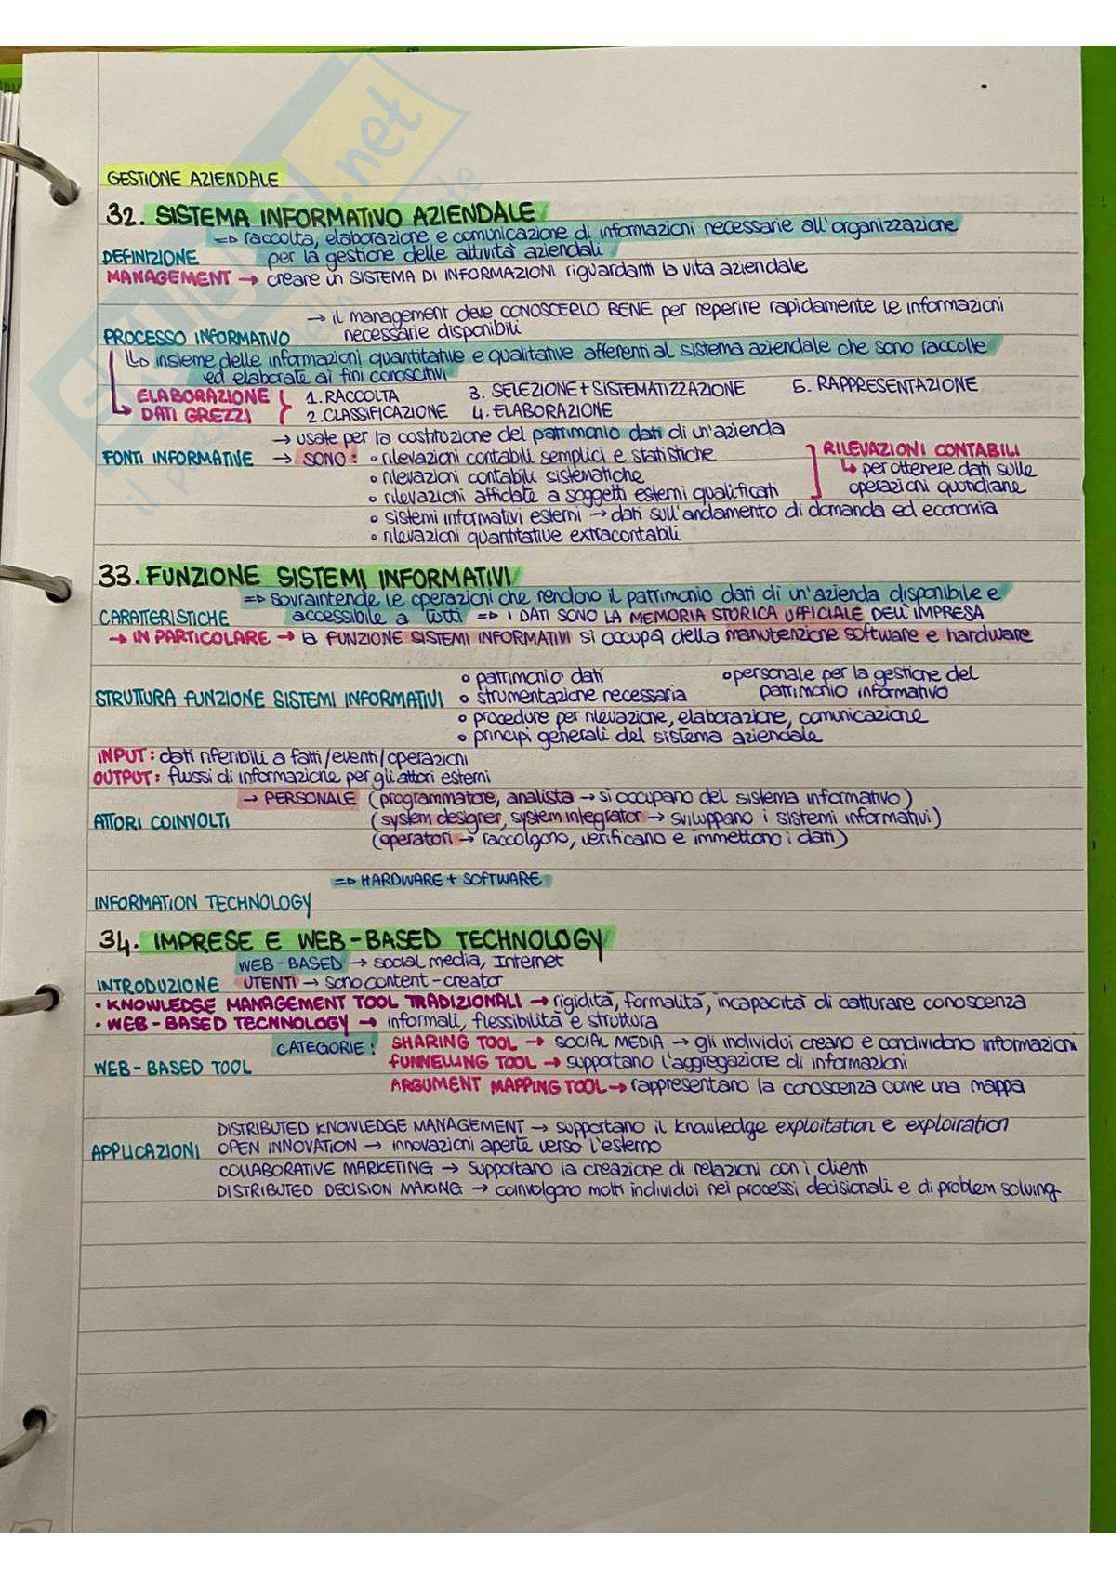 GESTIONE AZIENDALE
32. SISTEMA INFORMATIVO AZIENDALE
=> raccolta, elaborazione e comunicazione di informazioni necessarie all'organizzazione
DEFINIZIONE per la gestione delle attività aziendali
MANAGEMENT → creare un SISTEMA DI INFORMAZIONI riguardanti la vita aziendale
→ il management deve CONOSCERLO BENE per reperire rapidamente le informazioni
PROCESSO INFORMATIVO necessarie disponibili
↳ insieme delle informazioni quantitative e qualitative afferenti al sistema aziendale che sono raccolte
ed elaborate ai fini conoscitivi
ELABORAZIONE 1. RACCOLTA 3. SELEZIONE + SISTEMATIZZAZIONE 5. RAPPRESENTAZIONE
↳ DATI GREZZI } 2. CLASSIFICAZIONE 4. ELABORAZIONE
→ usate per la costituzione del patrimonio dati di un'azienda
FONTI INFORMATIVE → SONO: • rilevazioni contabili semplici e statistiche ] RILEVAZIONI CONTABILI
• rilevazioni contabili sistematiche ↳ per ottenere dati sulle
• rilevazioni affidate a soggetti esterni qualificati operazioni quotidiane
• sistemi informativi esterni → dati sull'andamento di domanda ed economia
• rilevazioni quantitative extracontabili
33. FUNZIONE SISTEMI INFORMATIVI
=> sovraintende le operazioni che rendono il patrimonio dati di un'azienda disponibile e
CARATTERISTICHE accessibile a tutti => i DATI SONO LA MEMORIA STORICA UFFICIALE DELL'IMPRESA
→ IN PARTICOLARE → la FUNZIONE SISTEMI INFORMATIVI si occupa della manutenzione software e hardware
• patrimonio dati • personale per la gestione del
STRUTTURA FUNZIONE SISTEMI INFORMATIVI • strumentazione necessaria patrimonio informativo
• procedure per rilevazione, elaborazione, comunicazione
• principi generali del sistema aziendale
INPUT: dati riferibili a fatti/eventi/operazioni
OUTPUT: flussi di informazione per gli attori esterni
→ PERSONALE (programmatore, analista → si occupano del sistema informativo)
ATTORI COINVOLTI (system designer, system integrator → sviluppano i sistemi informativi)
(operatori → raccolgono, verificano e immettono i dati)
=> HARDWARE + SOFTWARE
INFORMATION TECHNOLOGY
34. IMPRESE E WEB-BASED TECHNOLOGY
WEB-BASED → social media, Internet
INTRODUZIONE UTENTI → sono content-creator
• KNOWLEDGE MANAGEMENT TOOL TRADIZIONALI → rigidità, formalità, incapacità di catturare conoscenza
• WEB-BASED TECNOLOGY → informali, flessibilità e struttura
CATEGORIE: SHARING TOOL → SOCIAL MEDIA → gli individui creano e condividono informazioni
WEB-BASED TOOL FUNNELLING TOOL → supportano l'aggregazione di informazioni
ARGUMENT MAPPING TOOL → rappresentano la conoscenza come una mappa
DISTRIBUTED KNOWLEDGE MANAGEMENT → supportano il knowledge exploitation e exploiration
APPLICAZIONI OPEN INNOVATION → innovazioni aperte verso l'esterno
COLLABORATIVE MARKETING → supportano la creazione di relazioni con i clienti
DISTRIBUTED DECISION MAKING → coinvolgono molti individui nei processi decisionali e di problem solving